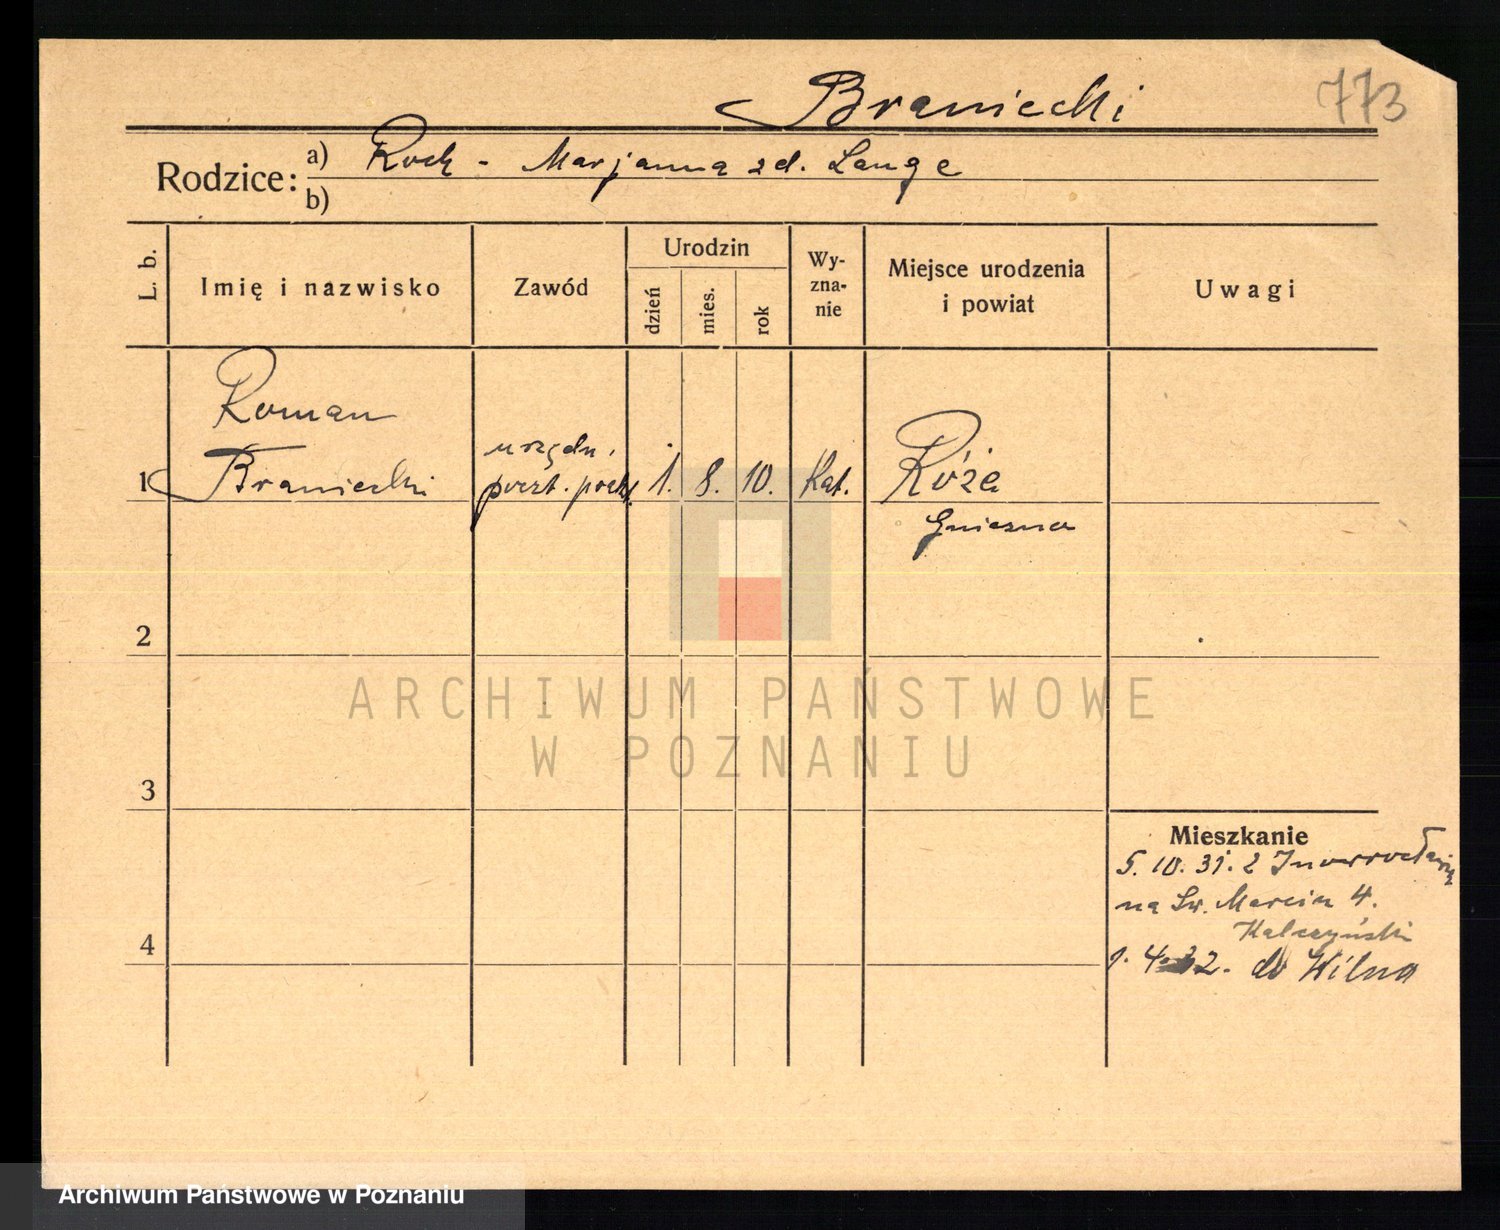 Braniecki
773
Rodzice:
a) Roch - Marjanna zd. Lange
b)
L. b.
Imię i nazwisko
Zawód
Urodzin
dzień
mies.
rok
Wy-
zna-
nie
Miejsce urodzenia
i powiat
Uwagi
Roman
1 Braniecki
urzędn.
poczt.
1. 8. 10.
Kat.
Róża
Gniezno
2
3
4
Mieszkanie
5. 10. 31. z Inowrocławia
na Św. Marcin 4.
Kalczyński
do Wilna
ARCHIWUM PAŃSTWOWE
W POZNANIU
Archiwum Państwowe w Poznaniu